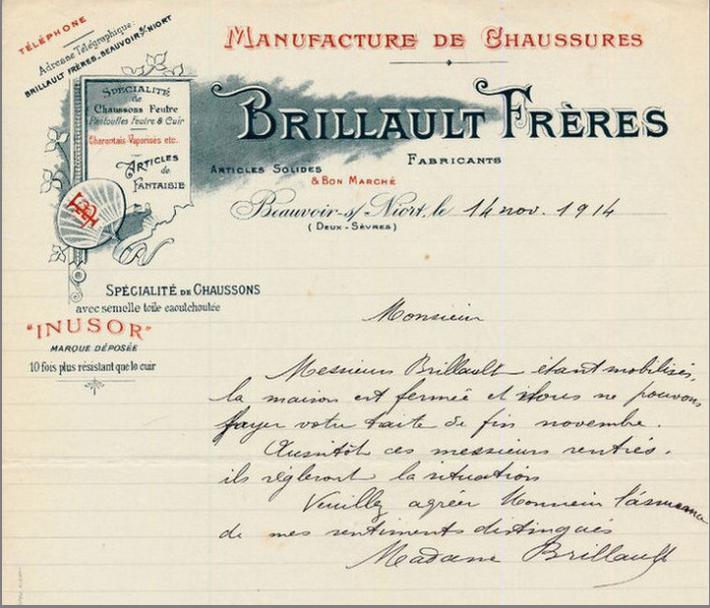 TÉLÉPHONE
Adresse Télégraphique:
BRILLAULT FRÈRES_BEAUVOIR S/ NIORT
MANUFACTURE DE CHAUSSURES
SPÉCIALITÉ
de
Chaussons Feutre
Pantoufles Feutre & Cuir
Charentais-Vaporisés etc.
ARTICLES
de
FANTAISIE
BRILLAULT FRÈRES
FABRICANTS
ARTICLES SOLIDES
& BON MARCHÉ
Beauvoir-s/ Niort, le 14 nov. 1914
(DEUX-SÈVRES)
SPÉCIALITÉ DE CHAUSSONS
avec semelle toile caoutchoutée
"INUSOR"
MARQUE DÉPOSÉE
10 fois plus résistant que le cuir
Monsieur
Messieurs Brillault étant mobilisés,
la maison est fermée et nous ne pouvons
payer votre traite de fin novembre.
Aussitôt ces messieurs rentrés,
ils régleront la situation
Veuillez agréer Monsieur l'assurance
de mes sentiments distingués
Madame Brillault